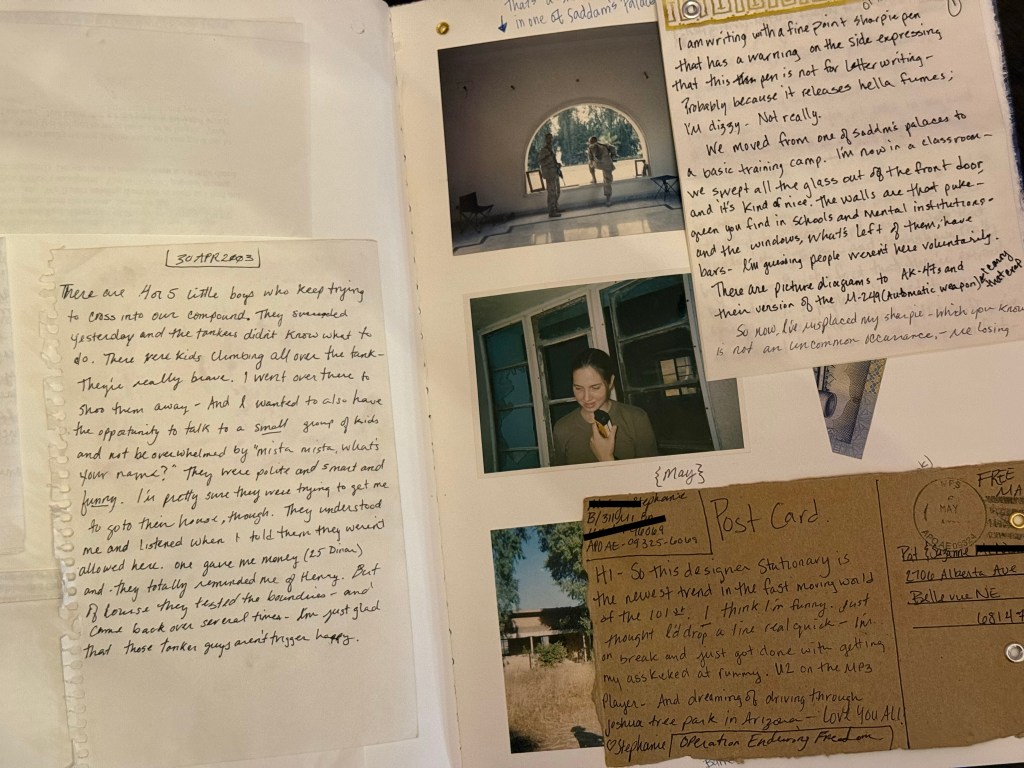 30 APR 2003
There are 4 or 5 little boys who keep trying
to cross into our compound. They surrounded
yesterday and the tankers didn't know what to
do. There were kids climbing all over the tank-
They're really brave. I went over there to
shoo them away - And I wanted to also have
the opportunity to talk to a small group of kids
and not be overwhelmed by "mista mista, what's
your name?" They were polite and smart and
funny. I'm pretty sure they were trying to get me
to go to their house, though. They understood
me and listened when I told them they weren't
allowed here. One gave me money (25 Dinar)
and they totally reminded me of Henry. But
of course they tested the boundries - and
came back over several times - I'm just glad
that those tanker guys aren't trigger happy.
That's a
in one of Saddam's Palaces
1
I am writing with a fine point sharpie pen
that has a warning on the side expressing
that this pen is not for letter writing -
Probably because it releases hella fumes;
I'm dizzy - Not really.
We moved from one of Saddm's palaces to
a basic training camp. I'm now in a classroom -
we swept all the glass out of the front door
and it's kind of nice. The walls are that puke-
green you find in schools and mental institutions -
and the windows, what's left of them, have
bars - I'm guessing people weren't here voluntarily.
There are picture diagrams to AK-47s and
their version of the M-249 (Automatic weapon)
So now I've misplaced my sharpie - which you know
is not an uncommon occurance, - me losing
{May}
Stephanie
B/311th MI Bn
APO AE - 09325-6069
Post Card.
Hi - So this designer stationary is
the newest trend in the fast moving world
of the 101st. I think I'm funny. Just
thought I'd drop a line real quick - I'm
on break and just got done with getting
my ass kicked at rummy. U2 on the MP3
Player - And dreaming of driving through
Joshua tree park in Arizona - LOVE YOU ALL!
♡Stephanie
Operation Enduring Freedom
FREE
MA
MAY
Pat & Suzanne
2706 Alberta Ave
Bellevue NE
68147